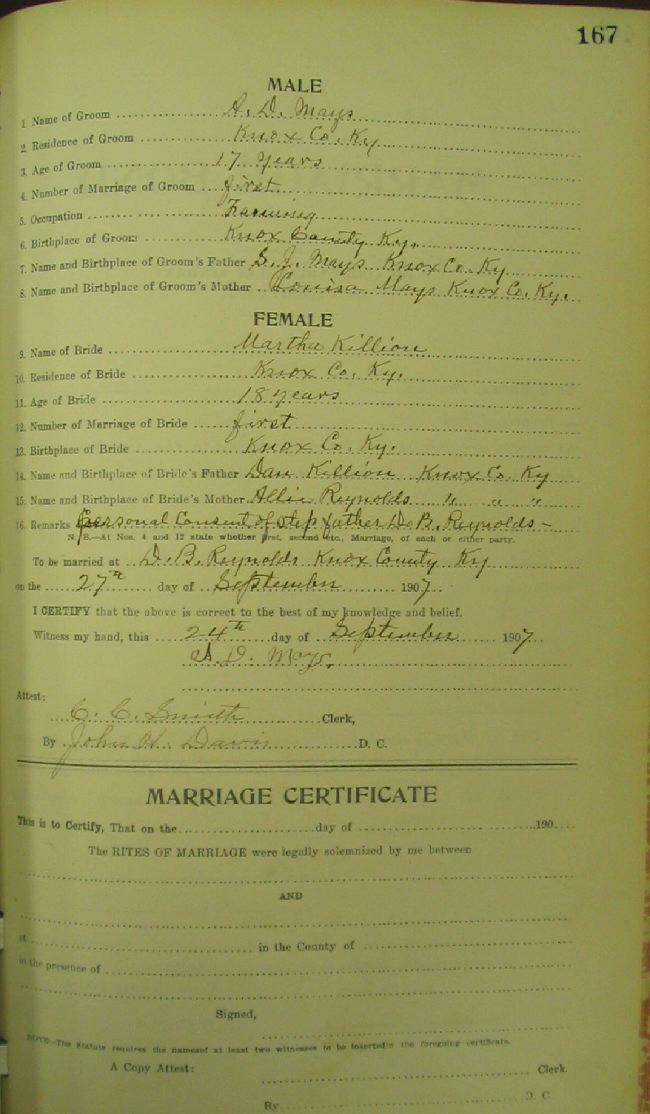 167
MALE
1. Name of Groom A. D. Mays
2. Residence of Groom Knox Co. Ky
3. Age of Groom 17 years
4. Number of Marriage of Groom first
5. Occupation Farming
6. Birthplace of Groom Knox County Ky.
7. Name and Birthplace of Groom's Father S. J. Mays Knox Co. Ky
8. Name and Birthplace of Groom's Mother Louisa Mays Knox Co. Ky.
FEMALE
9. Name of Bride Martha Killion
10. Residence of Bride Knox Co. Ky.
11. Age of Bride 18 years
12. Number of Marriage of Bride first
13. Birthplace of Bride Knox Co. Ky.
14. Name and Birthplace of Bride's Father Dan Killion Knox Co. Ky
15. Name and Birthplace of Bride's Mother Allie Reynolds " " "
16. Remarks Personal Consent of step father D. B. Reynolds -
N. B.—At Nos. 4 and 12 state whether first, second etc., Marriage, of each or either party.
To be married at D. B. Reynolds Knox County Ky
on the 27th day of September 1907.
I CERTIFY that the above is correct to the best of my knowledge and belief.
Witness my hand, this 24th day of September 1907
A. D. Mays.
Attest:
C. C. Smith Clerk,
By John H. Davis D. C.
MARRIAGE CERTIFICATE
This is to Certify, That on the day of 190
The RITES OF MARRIAGE were legally solemnized by me between
AND
at in the County of
in the presence of
Signed,
NOTE—The Statute requires the names of at least two witnesses to be inserted in the foregoing certificate.
A Copy Attest: Clerk.
By D. C.